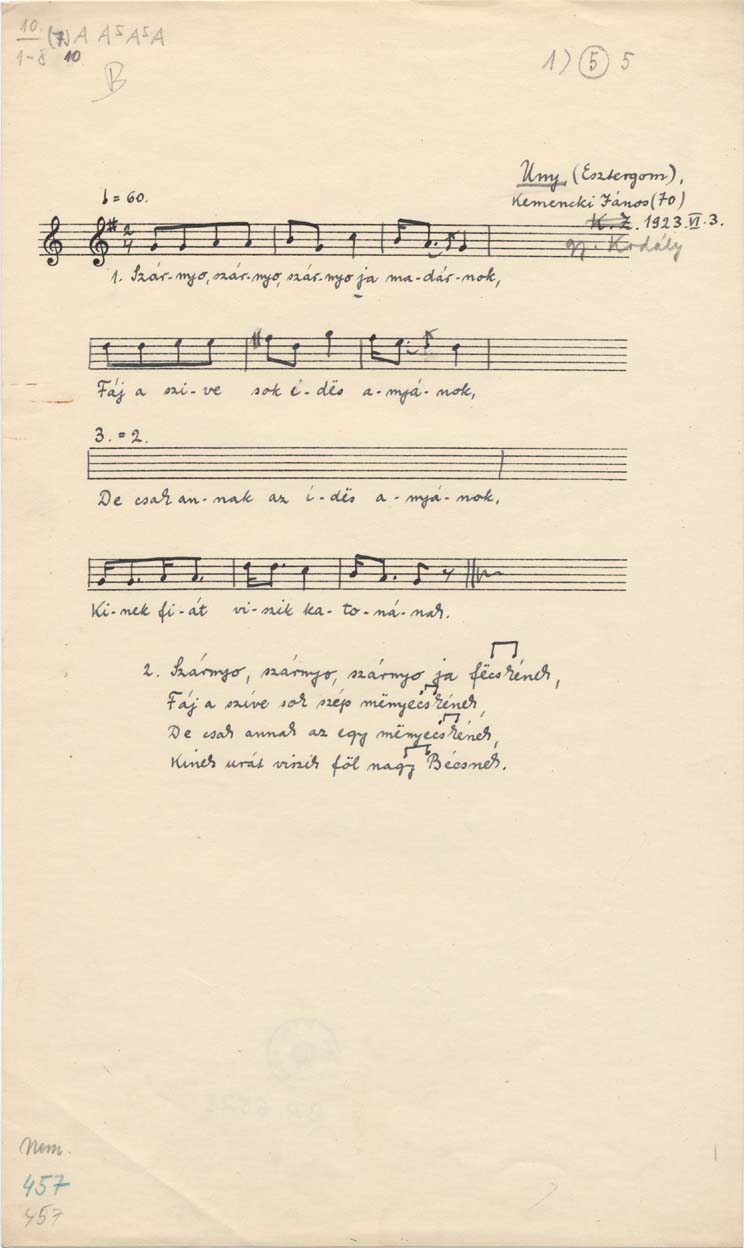 10. (7) A A⁵ A⁵ A
1-8 10
B
1) 5 5
Uny, (Esztergom),
Kemencki János (70)
K. Z. 1923. VI. 3.
gy. Kodály
= 60.
2
4
1. Szár-nyo, szár-nyo, szár-nyo ja ma-dár-nok,
Fáj a szi-ve sok é-dës a-nyá-nok,
3. = 2.
De csak an-nak az í-dës a-nyá-nok,
Ki-nek fi-át vi-szik ka-to-ná-nak.
2. Szárnyo, szárnyo, szárnyo ja fëcskének,
Fáj a szíve sok szép mënyecskének,
De csak annak az egy mënyecskének,
Kinek urát viszik föl nagy Bécsnek.
Nem.
457
457